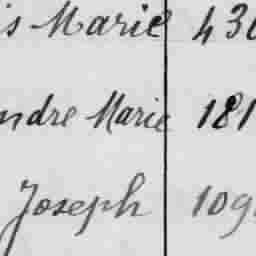 is Marie 430
ndre Marie 181
Joseph 109